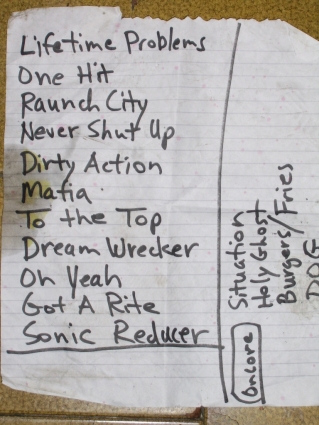 Lifetime Problems
One Hit
Raunch City
Never Shut Up
Dirty Action
Mafia
To the Top
Dream Wrecker
Oh Yeah
Got A Rite
Sonic Reducer
Oncore
Situation
Holy Ghost
Burgers/Fries
DOG